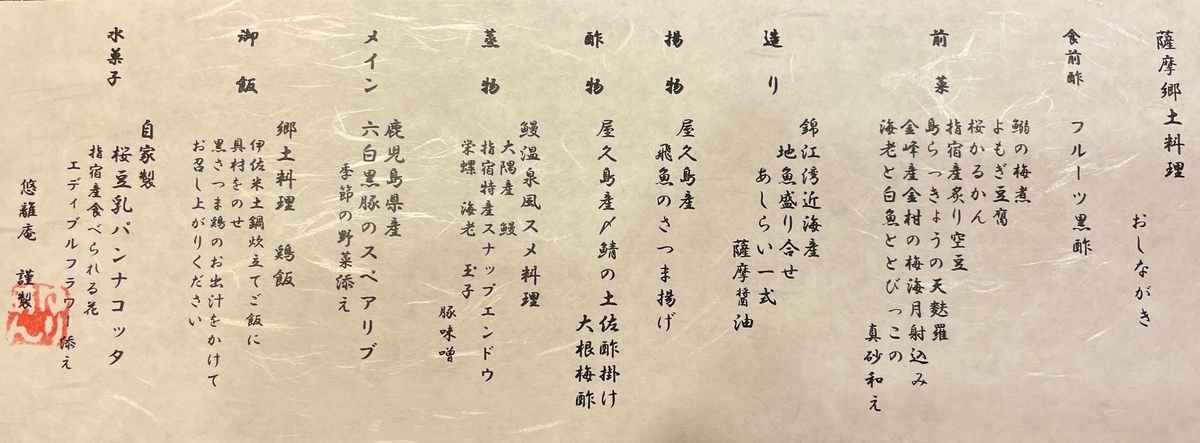 薩摩郷土料理
おしながき
食前酢 フルーツ黒酢
前菜
鰯の梅煮
よもぎ豆腐
桜かるかん
指宿産炙り空豆
島らっきょうの天麩羅
金峰産金柑の梅海月射込み
海老と白魚ととびっこの
真砂和え
造り
錦江湾近海産
地魚盛り合せ
あしらい一式
薩摩醤油
揚物
屋久島産
飛魚のさつま揚げ
酢物
屋久島産〆鯖の土佐酢掛け
大根梅酢
蒸物
鰻温泉風スメ料理
大隅産 鰻
指宿特産スナップエンドウ
栄螺 海老 玉子
豚味噌
メイン
鹿児島県産
六白黒豚のスペアリブ
季節の野菜添え
御飯
郷土料理 鶏飯
伊佐米土鍋炊立てご飯に
具材をのせ
黒さつま鶏のお出汁をかけて
お召し上がりください
水菓子
自家製
桜豆乳パンナコッタ
指宿産食べられる花
エディブルフラワー添え
悠離庵 謹製